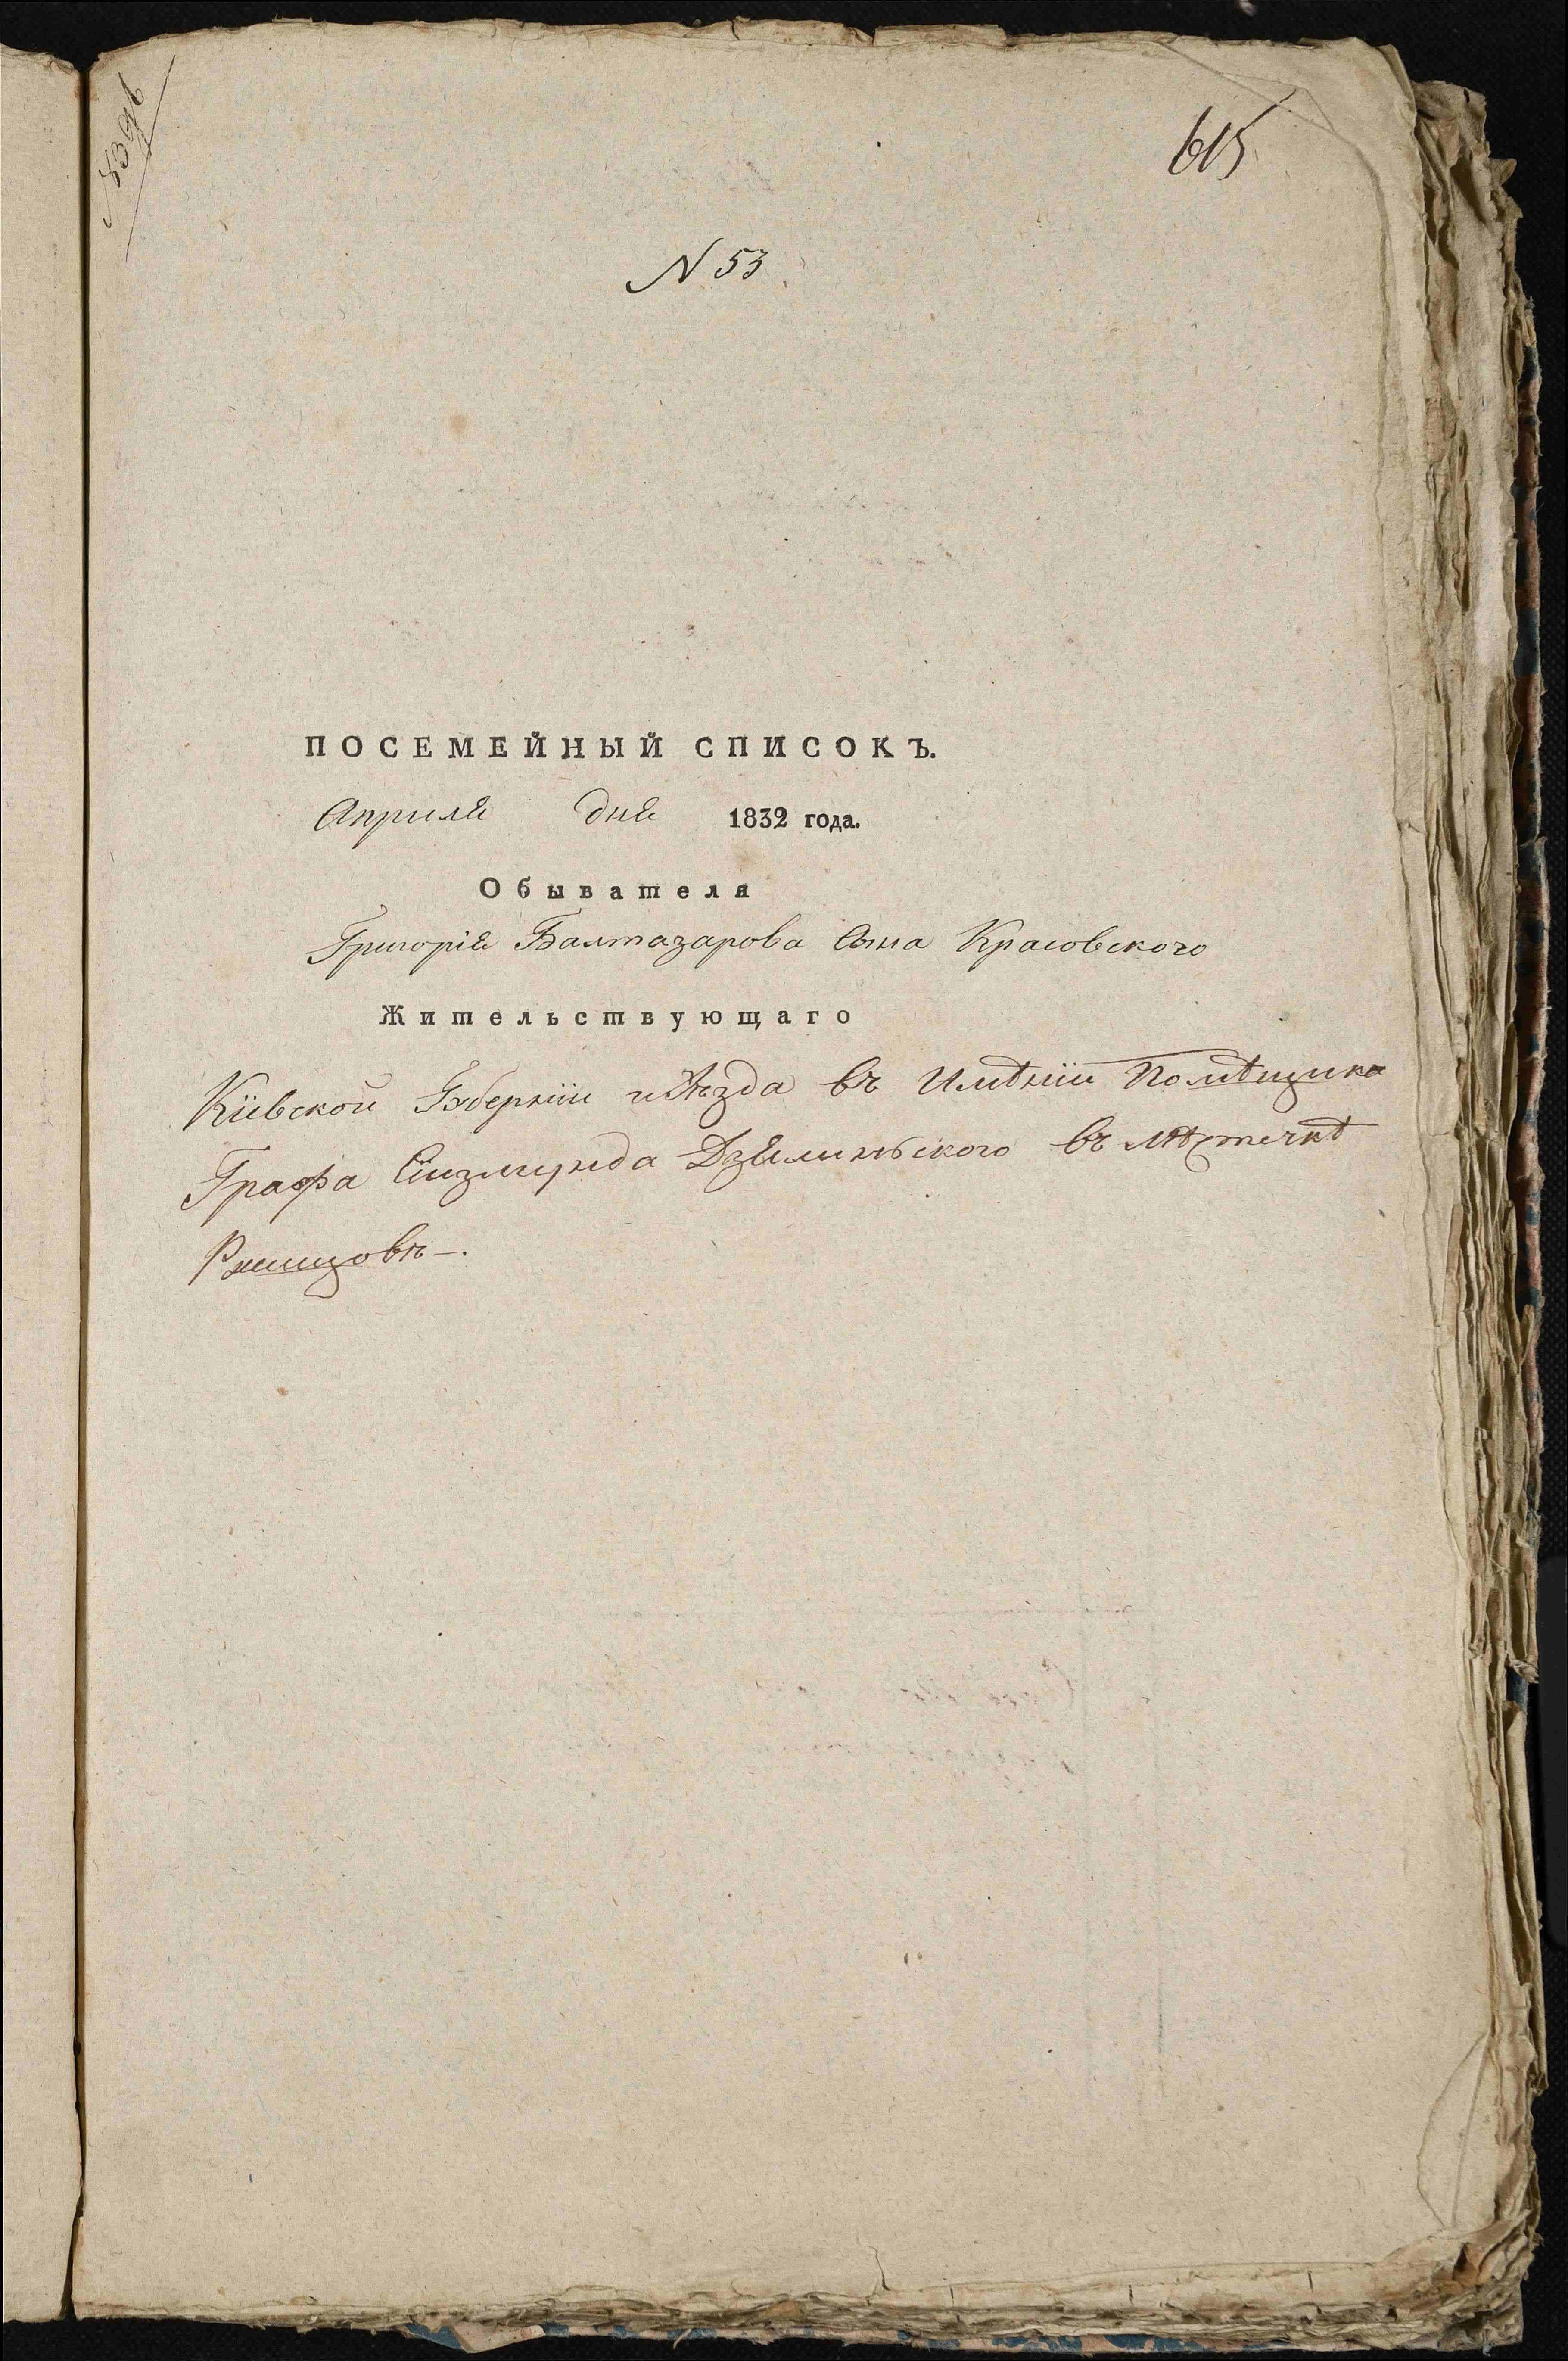 615
N 53
ПОСЕМЕЙНЫЙ СПИСОКЪ.
Апреля дня 1832 года.
Обывателя
Григорія Балтазарова Сына Красовского
Жительствующаго
Кіевской Губерніи уѣзда въ Имѣніи Помѣщика
Графа Сизмунда Дзялиньского въ мѣстечкѣ
Ржищовѣ.